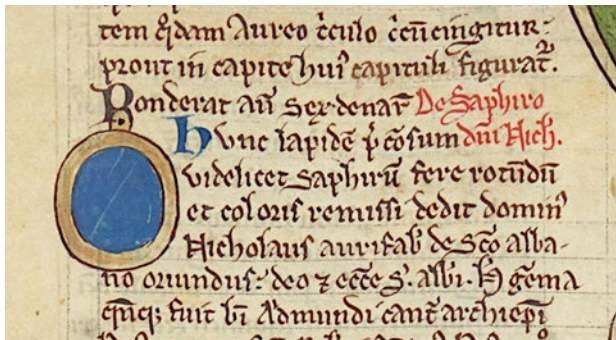 tem q̃dam Aureo c̃culo c̃cũcingitur:
prout in capite huiꝰ capituli figurat᷑.
Ponderat aũ sex denar̃ De Saphiro
Hunc lapidẽ p̃ciosum dñi Nich.
videlicet Saphirũ fere rotũdũ
et coloris remissi dedit dominꝰ
Nicholaus aurifab̃ de Sc̃o alba-
no oriundus: deo ⁊ ecc̃e S. alb̃i. H̃ gẽma
q̃nq; fuit b̃i Admundi cant̃ archiep̃i